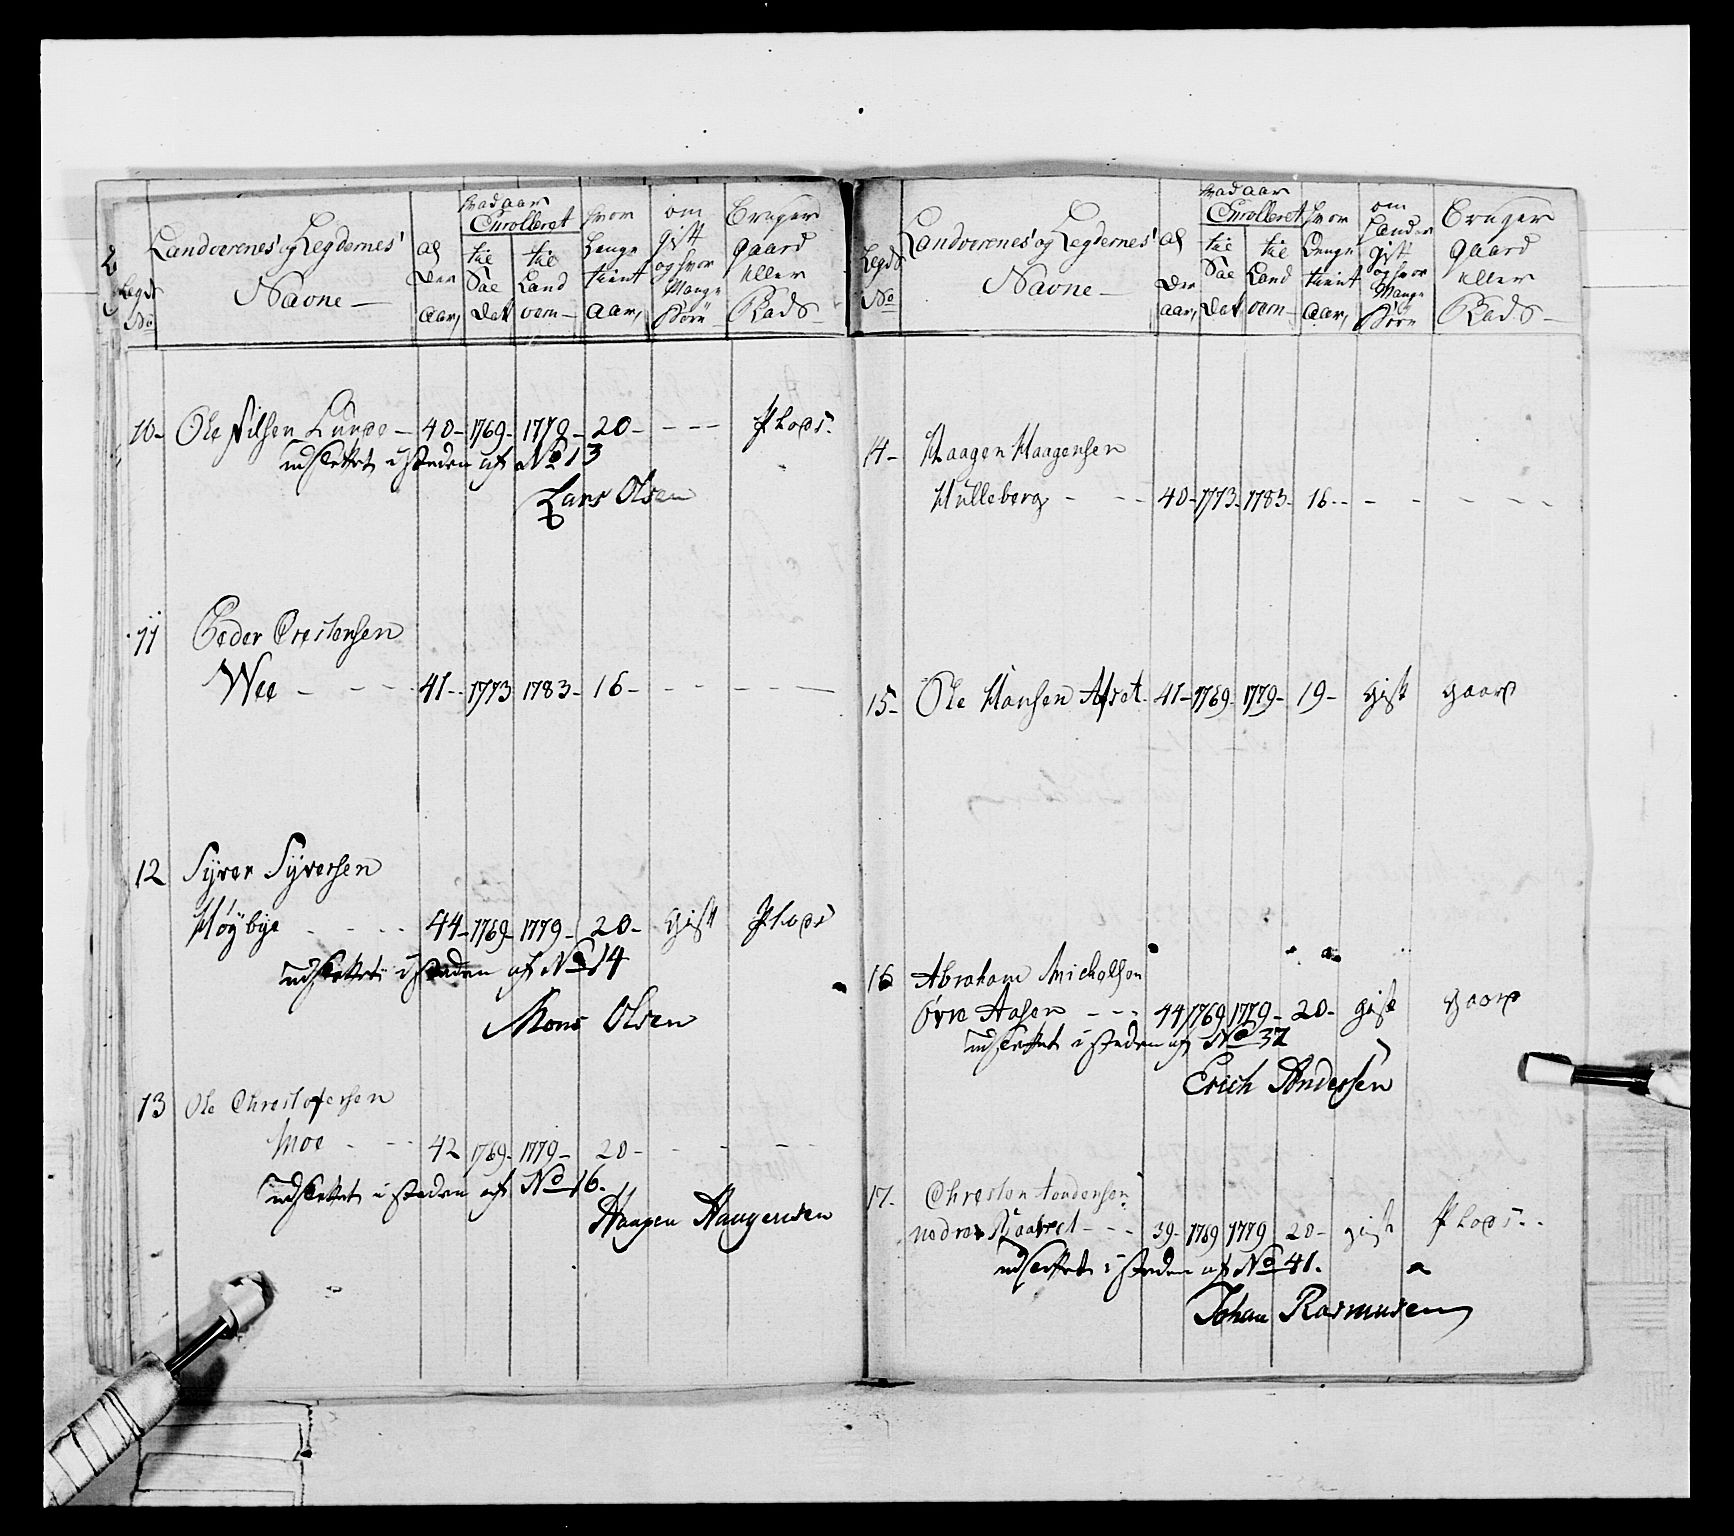 Legds No
Landværenes' og Legdernes' Navne
al der aar,
hvad aar Enrolleret
til Soe Det
til Land vern
hvor Lenge tient aar,
om gift og hvor Mange Børn
Bruger gaard eller Plads
10 Ole Nilsen Lunde 40 1769 1779 20 - - - Plads.
udslettet i steden af No 13
Lars Olsen
11 Peder Crestensen
Wee - - - 41 1773 1783 16 - - - - -
12 Syver Syversen
Høybye - - - 44 1769 1779 20 gift Plads
udslettet i steden af No 14
Mons Olsen
13 Ole Chrestofersen
Moe - - - 42 1769 1779 20 - - - -
udslettet i steden af No 16.
Haagen Haagensen
Legds No
Landværenes' og Legdernes' Navne
al der aar,
hvad aar Enrolleret
til Sae Det
til Land vern
hvor Lenge tient aar,
om Landv gift og hvor Mange Børn
Bruger gaard eller Plads
14 Haagen Haagensen
Hulleberg - - - 40 1773 1783 16 - - - - -
15 Ole Hansen 41 1769 1779 19 gift gaard
16 Abraham Michelsen
Øvre Aasen - - - 44 1769 1779 20 gift gaard
udslettet i steden af No 32
Erich Andersen
17. Chresten
nedre - - - 39 1769 1779 20 gift Plads
udslettet i steden af No 41.
Johan Rasmusen